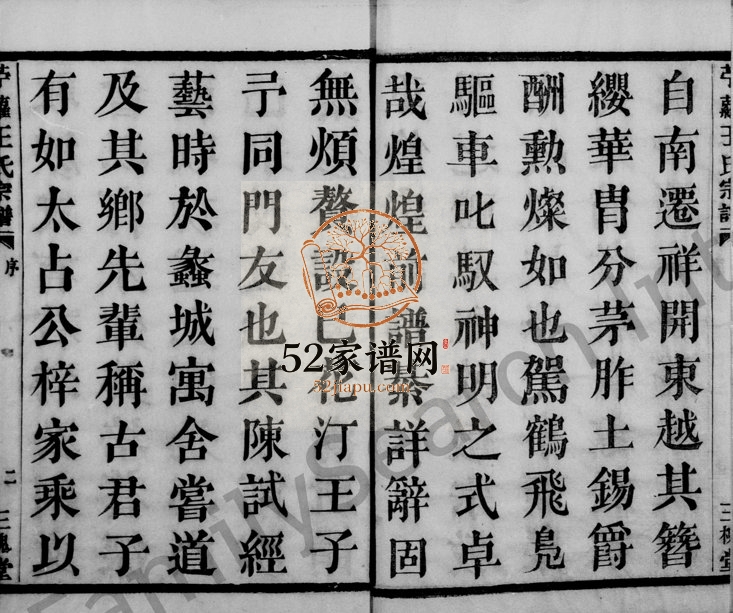 苧蘿王氏宗譜 三槐堂
自南遷祥開東越其簪
纓華胄分茅胙土錫爵
酬勳燦如也駕鶴飛鳧
驅車叱馭神明之式卓
哉煌煌前譜綦詳辭固
無煩贅設已花汀王子
予同門友也其陳試經
藝時於蠡城寓舍嘗道
及其鄉先輩稱古君子
有如太占公梓家乘以
苧蘿王氏宗譜 序 二 三槐堂
52家谱网
52jiapu.com
FamilySearch Int